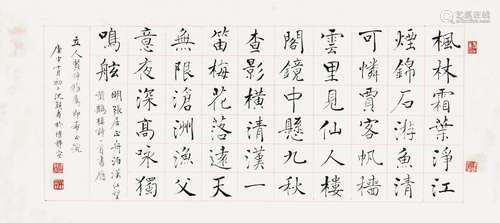 楓林霜葉淨江
煙錦石游魚清
可憐賈客帆檣
雲里見仙人樓
閣鏡中懸九秋
查影橫清漢一
笛梅花落遠天
無限滄洲漁父
意夜深高詠獨
鳴舷
明張居正舟泊漢江望
黃鶴樓詩一首書應
立人賢仲雅屬即希
庚申十月初二沈